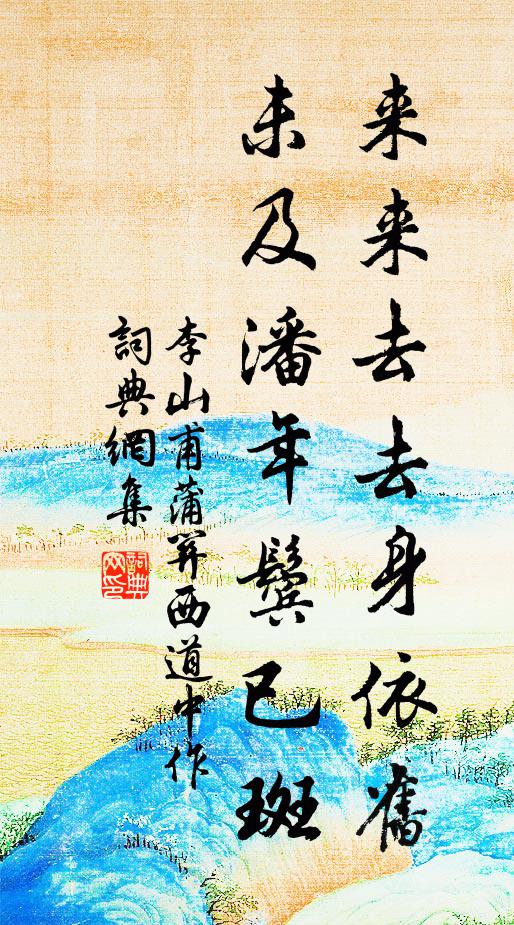 来来去去身依舊
未及潘年鬢已斑
李山甫蒲關西道中作
詞典網集
詞典
网印